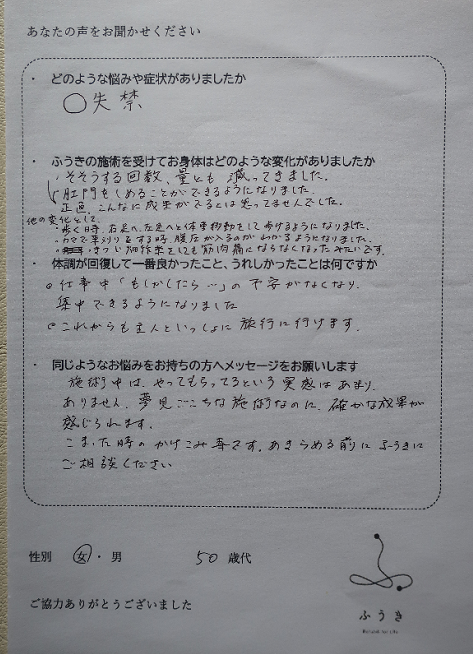 あなたの声をお聞かせください
・ どのような悩みや症状がありましたか
○失禁
・ ふうきの施術を受けてお身体はどのような変化がありましたか
・そそうする回数、量とも 減ってきました。
肛門をしめることができるようになりました。
正直 こんなに成果がでるとは思ってませんでした。
他の変化として、
・歩く時、右足へ左足へと体重移動をして歩けるようになりました。
する時、腹圧が入るのがわかるようになりました。
・きつい畑作業をしても筋肉痛にならなくなったみたいです。
・ 体調が回復して一番良かったこと、うれしかったことは何ですか
○仕事中「もしかしたら…」の不安がなくなり、
集中できるようになりました
○これからも主人といっしょに旅行に行けます。
・ 同じようなお悩みをお持ちの方へメッセージをお願いします
施術中は、やってもらってるという実感はあまり
ありません。夢見ごこちな施術なのに、確かな成果が
感じられます。
こまった時のかけこみ寺です。あきらめる前に ふうきに
ご相談ください
性別 女・男 50 歳代
ご協力ありがとうございました
ふうき